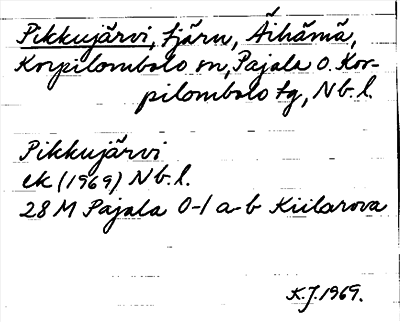 Pikkujärvi, tjärn, Äihämä,
Korpilombolo sn, Pajala o. Kor-
pilombolo tg, Nb.l.
Pikkujärvi
ek (1969) Nb.l.
28 M Pajala 0-1 a-b Kiilarova
K.J. 1969.